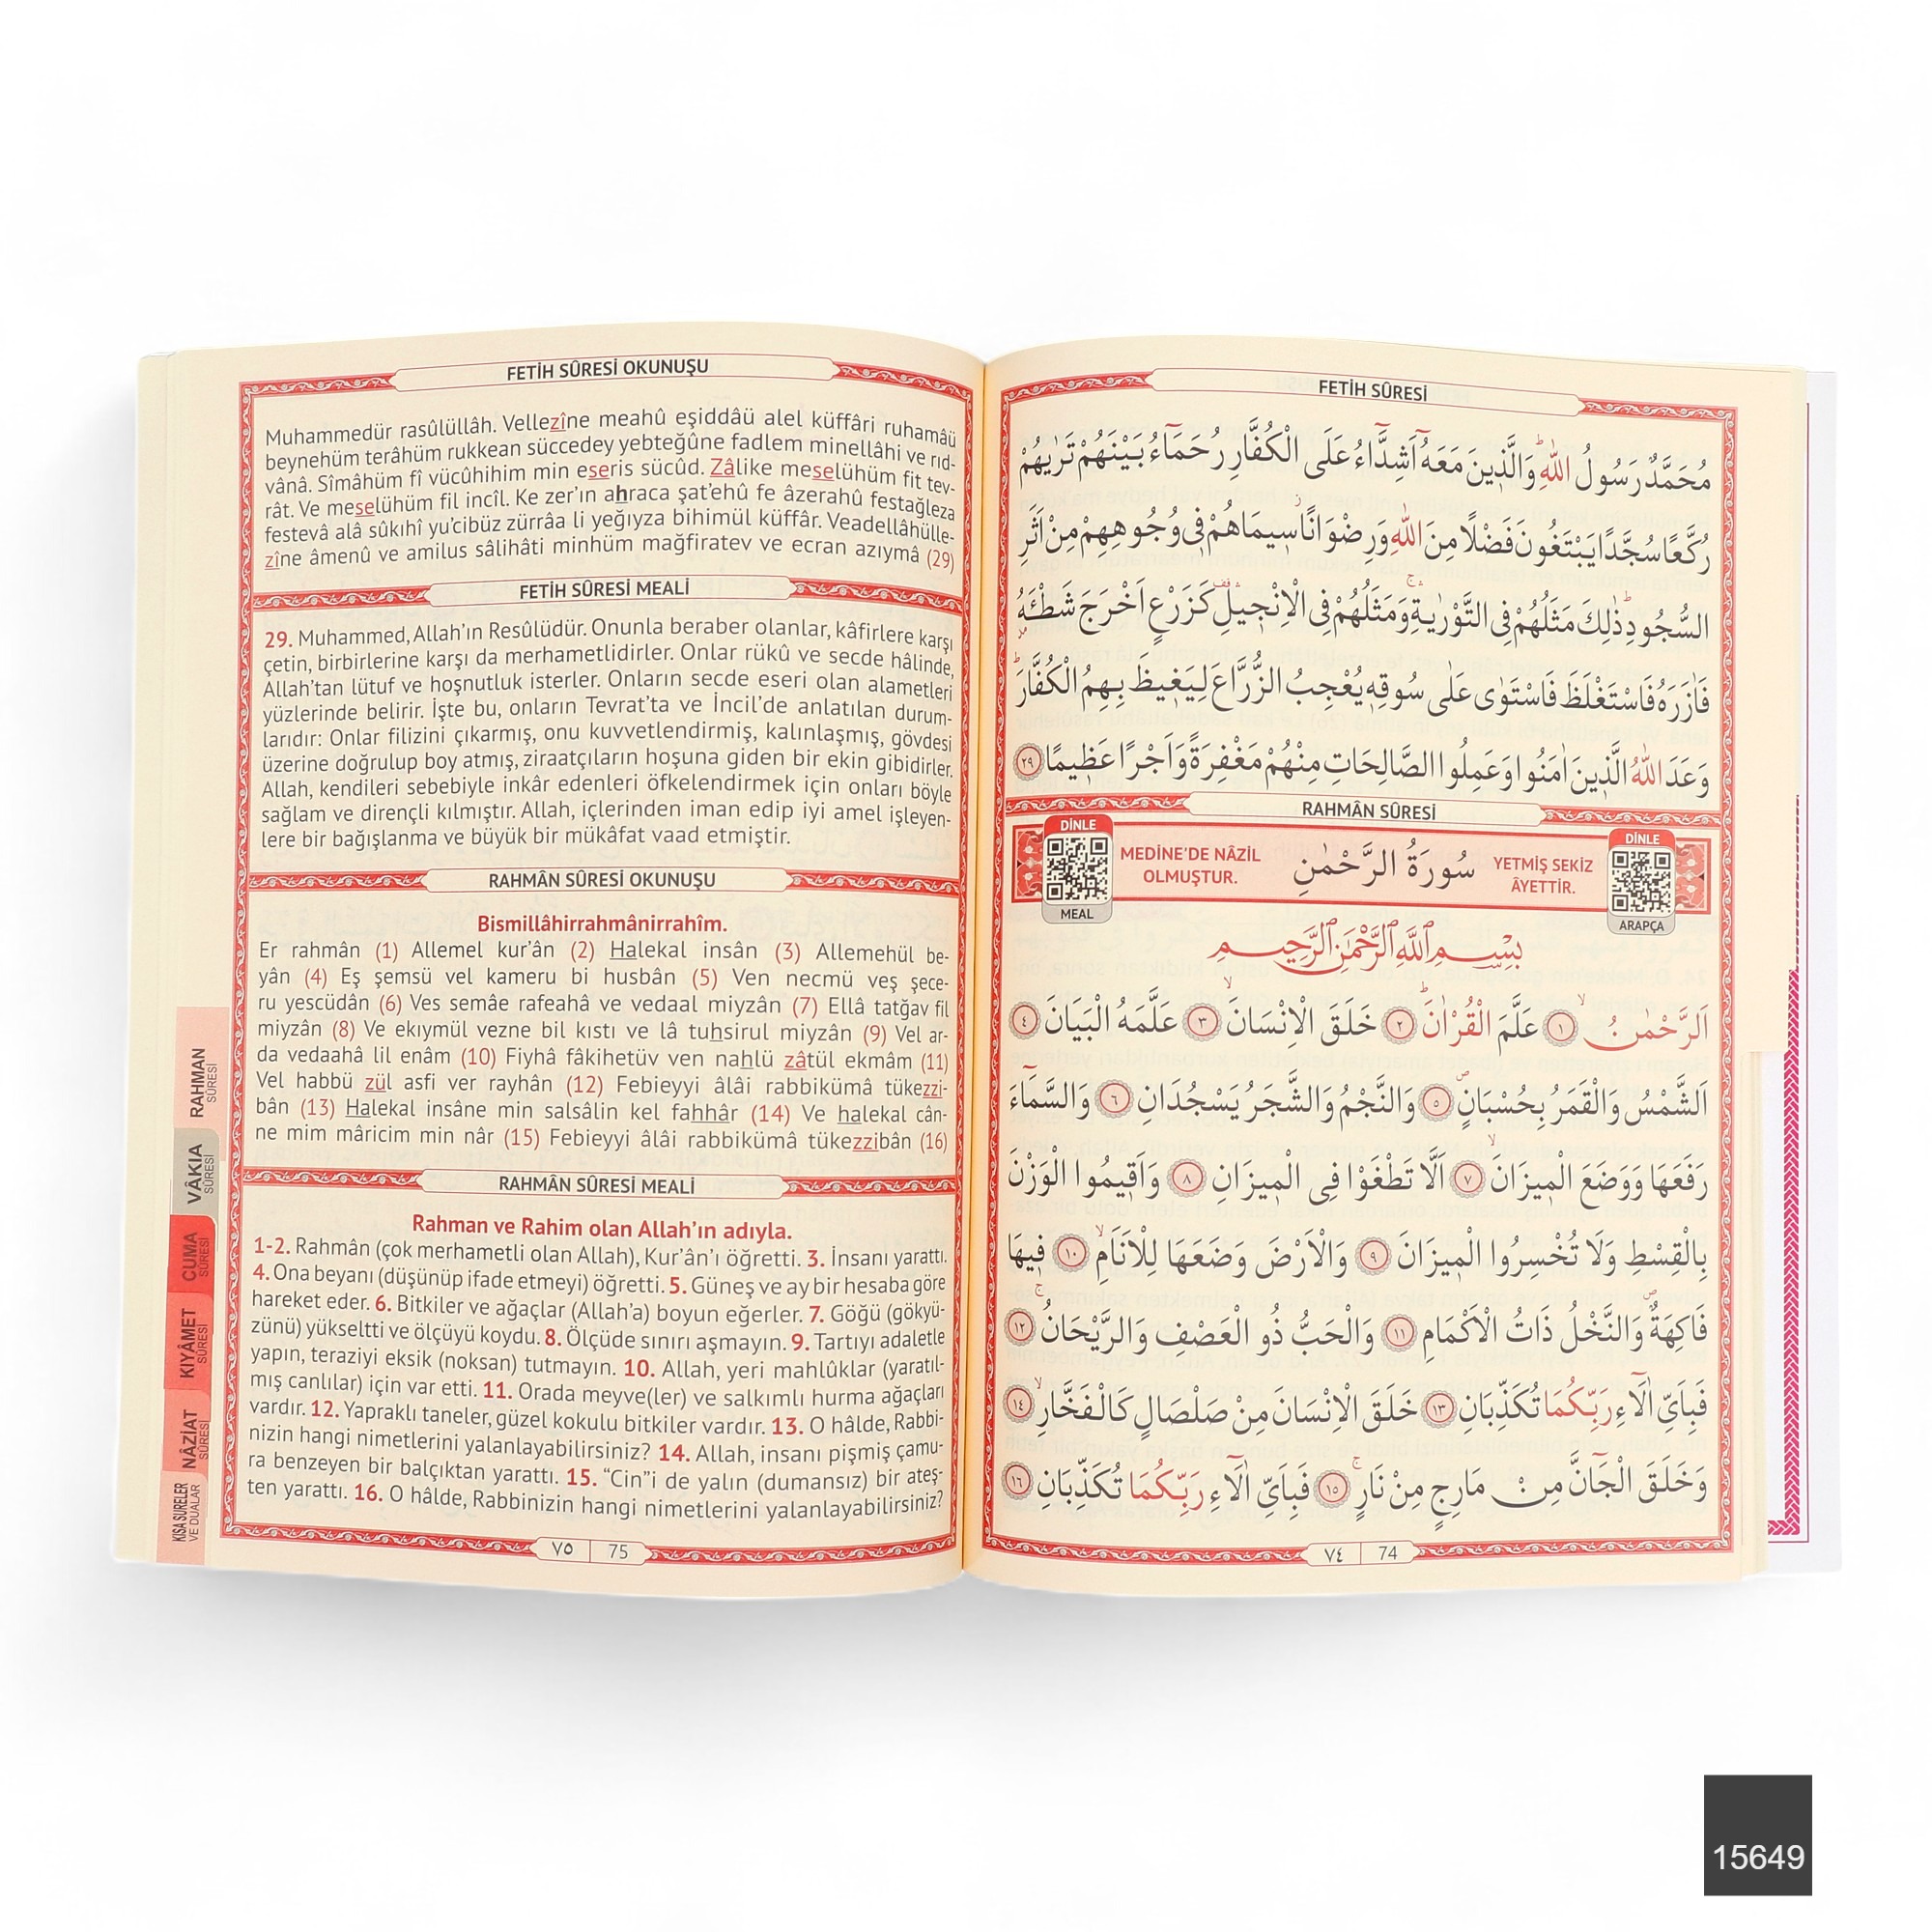 FETİH SÛRESİ
مُحَمَّدٌ رَسُولُ اللّٰهِ وَالَّذٖينَ مَعَهُٓ اَشِدَّٓاءُ عَلَى الْكُفَّارِ رُحَمَٓاءُ بَيْنَهُمْ تَرٰيهُمْ
رُكَّعًا سُجَّدًا يَبْتَغُونَ فَضْلًا مِنَ اللّٰهِ وَرِضْوَانًا سٖيمَاهُمْ فٖى وُجُوهِهِمْ مِنْ اَثَرِ
السُّجُودِ ذٰلِكَ مَثَلُهُمْ فِى التَّوْرٰيةِ وَمَثَلُهُمْ فِى الْاِنْجٖيلِ كَزَرْعٍ اَخْرَجَ شَطْـَٔهُ
فَاٰزَرَهُ فَاسْتَغْلَظَ فَاسْتَوٰى عَلٰى سُوقِهٖ يُعْجِبُ الزُّرَّاعَ لِيَغٖيظَ بِهِمُ الْكُفَّارَ
وَعَدَ اللّٰهُ الَّذٖينَ اٰمَنُوا وَعَمِلُوا الصَّالِحَاتِ مِنْهُمْ مَغْفِرَةً وَاَجْرًا عَظٖيمًا ٢٩
RAHMÂN SÛRESİ
DİNLE
MEAL
MEDİNE'DE NÂZİL
OLMUŞTUR.
سُورَةُ الرَّحْمٰنِ
YETMİŞ SEKİZ
ÂYETTİR.
DİNLE
ARAPÇA
بِسْمِ اللّٰهِ الرَّحْمٰنِ الرَّحٖيمِ
اَلرَّحْمٰنُ ١ عَلَّمَ الْقُرْاٰنَ ٢ خَلَقَ الْاِنْسَانَ ٣ عَلَّمَهُ الْبَيَانَ ٤
اَلشَّمْسُ وَالْقَمَرُ بِحُسْبَانٍ ٥ وَالنَّجْمُ وَالشَّجَرُ يَسْجُدَانِ ٦ وَالسَّمَٓاءَ
رَفَعَهَا وَوَضَعَ الْمٖيزَانَ ٧ اَلَّا تَطْغَوْا فِى الْمٖيزَانِ ٨ وَاَقٖيمُوا الْوَزْنَ
بِالْقِسْطِ وَلَا تُخْسِرُوا الْمٖيزَانَ ٩ وَالْاَرْضَ وَضَعَهَا لِلْاَنَامِ ١٠ فٖيهَا
فَاكِهَةٌ وَالنَّخْلُ ذَاتُ الْاَكْمَامِ ١١ وَالْحَبُّ ذُو الْعَصْفِ وَالرَّيْحَانُ ١٢
فَبِاَىِّ اٰلَٓاءِ رَبِّكُمَا تُكَذِّبَانِ ١٣ خَلَقَ الْاِنْسَانَ مِنْ صَلْصَالٍ كَالْفَخَّارِ ١٤
وَخَلَقَ الْجَٓانَّ مِنْ مَارِجٍ مِنْ نَارٍ ١٥ فَبِاَىِّ اٰلَٓاءِ رَبِّكُمَا تُكَذِّبَانِ ١٦
٧٤ 74
FETİH SÛRESİ OKUNUŞU
Muhammedür rasûlüllâh. Vellezîne meahû eşiddâü alel küffâri ruhamâü
beynehüm terâhüm rukkean süccedey yebteğûne fadlem minellâhi ve rıd-
vânâ. Sîmâhüm fî vücûhihim min eseris sücûd. Zâlike meselühüm fit tev-
rât. Ve meselühüm fil incîl. Ke zer'ın ahraca şat'ehû fe âzerahû festağleza
festevâ alâ sûkıhî yu'cibüz zürrâa li yeğıyza bihimül küffâr. Veadellâhülle-
zîne âmenû ve amilus sâlihâti minhüm mağfiratev ve ecran azıymâ (29)
FETİH SÛRESİ MEALİ
29. Muhammed, Allah'ın Resûlüdür. Onunla beraber olanlar, kâfirlere karşı
çetin, birbirlerine karşı da merhametlidirler. Onlar rükû ve secde hâlinde,
Allah'tan lütuf ve hoşnutluk isterler. Onların secde eseri olan alametleri
yüzlerinde belirir. İşte bu, onların Tevrat'ta ve İncil'de anlatılan durum-
larıdır: Onlar filizini çıkarmış, onu kuvvetlendirmiş, kalınlaşmış, gövdesi
üzerine doğrulup boy atmış, ziraatçıların hoşuna giden bir ekin gibidirler.
Allah, kendileri sebebiyle inkâr edenleri öfkelendirmek için onları böyle
sağlam ve dirençli kılmıştır. Allah, içlerinden iman edip iyi amel işleyen-
lere bir bağışlanma ve büyük bir mükâfat vaad etmiştir.
RAHMÂN SÛRESİ OKUNUŞU
Bismillâhirrahmânirrahîm.
Er rahmân (1) Allemel kur'ân (2) Halekal insân (3) Allemehül be-
yân (4) Eş şemsü vel kameru bi husbân (5) Ven necmü veş şece-
ru yescüdân (6) Ves semâe rafeahâ ve vedaal miyzân (7) Ellâ tatğav fil
miyzân (8) Ve ekıymül vezne bil kıstı ve lâ tuhsirul miyzân (9) Vel ar-
da vedaahâ lil enâm (10) Fiyhâ fâkihetüv ven nahlü zâtül ekmâm (11)
Vel habbü zül asfi ver rayhân (12) Febieyyi âlâi rabbikümâ tükezzi-
bân (13) Halekal insâne min salsâlin kel fahhâr (14) Ve halekal cân-
ne mim mâricim min nâr (15) Febieyyi âlâi rabbikümâ tükezzibân (16)
RAHMÂN SÛRESİ MEALİ
Rahman ve Rahim olan Allah'ın adıyla.
1-2. Rahmân (çok merhametli olan Allah), Kur'ân'ı öğretti. 3. İnsanı yarattı.
4. Ona beyanı (düşünüp ifade etmeyi) öğretti. 5. Güneş ve ay bir hesaba göre
hareket eder. 6. Bitkiler ve ağaçlar (Allah'a) boyun eğerler. 7. Göğü (gökyü-
zünü) yükseltti ve ölçüyü koydu. 8. Ölçüde sınırı aşmayın. 9. Tartıyı adaletle
yapın, teraziyi eksik (noksan) tutmayın. 10. Allah, yeri mahlûklar (yaratıl-
mış canlılar) için var etti. 11. Orada meyve(ler) ve salkımlı hurma ağaçları
vardır. 12. Yapraklı taneler, güzel kokulu bitkiler vardır. 13. O hâlde, Rabbi-
nizin hangi nimetlerini yalanlayabilirsiniz? 14. Allah, insanı pişmiş çamu-
ra benzeyen bir balçıktan yarattı. 15. "Cin"i de yalın (dumansız) bir ateş-
ten yarattı. 16. O hâlde, Rabbinizin hangi nimetlerini yalanlayabilirsiniz?
٧٥ 75
RAHMAN
SÛRESİ
VÂKIA
SÛRESİ
CUMA
SÛRESİ
KIYÂMET
SÛRESİ
NÂZİAT
SÛRESİ
KISA SURELER
VE DUALAR
15649